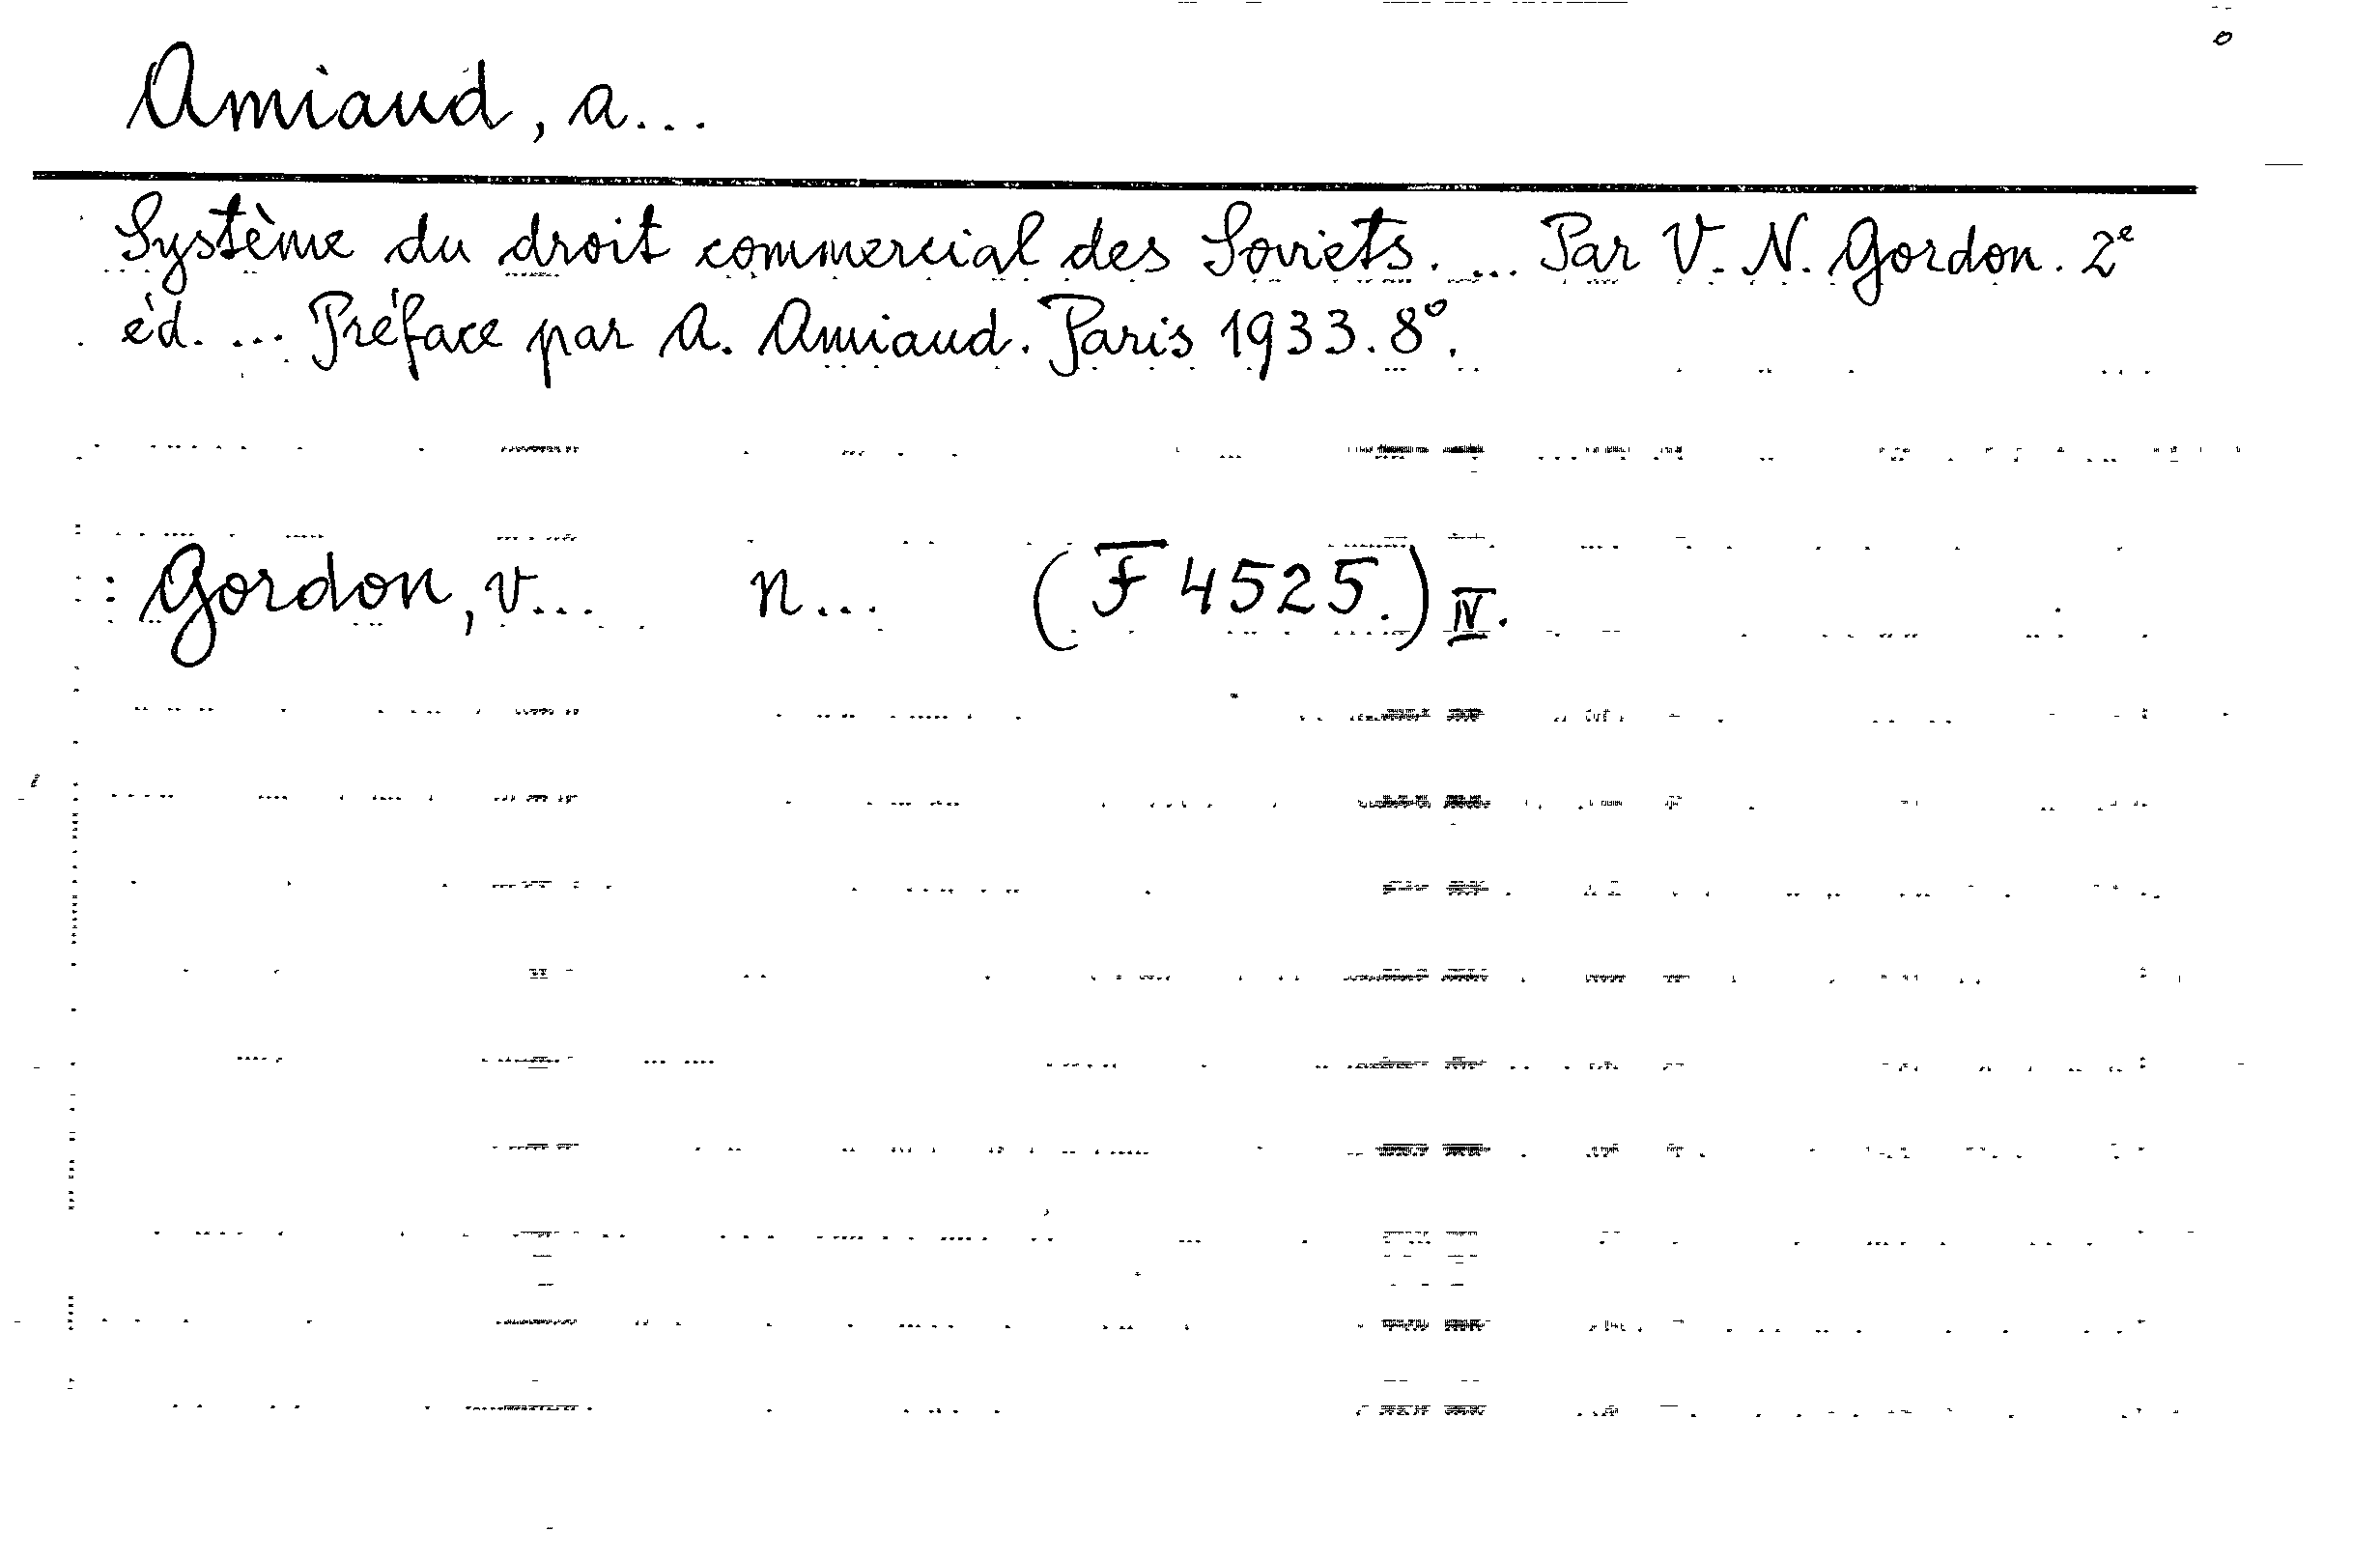 Amiaud, A...
Système du droit commercial des Soviets. ... Par V. N. Gordon. 2e
éd. ... Préface par A. Amiaud. Paris 1933. 8°.
Gordon, V... N... (F 4525.) IV.